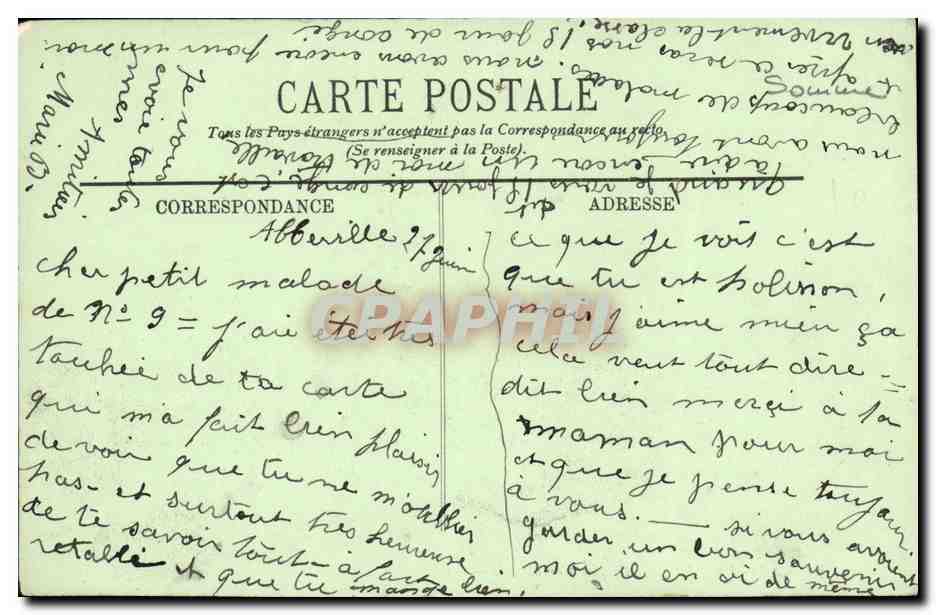 CARTE POSTALE
Tous les Pays étrangers n'acceptent pas la Correspondance au recto.
(Se renseigner à la Poste).
CORRESPONDANCE
ADRESSE
Abberville 27 Juin
cher petit malade
de No 9 = j'aie étéi très
touchée de ta carte
qui m'a fait bien plaisir
de voir que tu ne m'oublier
pas - et surtout très heureuse
de te savoir tout-à fait
retablé et que tu mange bien.
ce que je voit c'est
que tu est polisson,
mais j'aime mieu ça
cela veut tout dire =
dit bien merçi à ta
maman pour moi
et que je pense toujours
à vous. — si vous avoient
garder un bon souvenir
moi il en ai de même
quand je vais 18 jours de conge, c'est
à dire encore un moi de travaille
nous avont toujours
beaucoup de malades
et après ce seras nos 18 jour de conge
vivement la classe!
nous avons encore pour un moi
Je vous
envoie toutes
mes
Amitiés
Marie B.
Somme
CRAPHIL